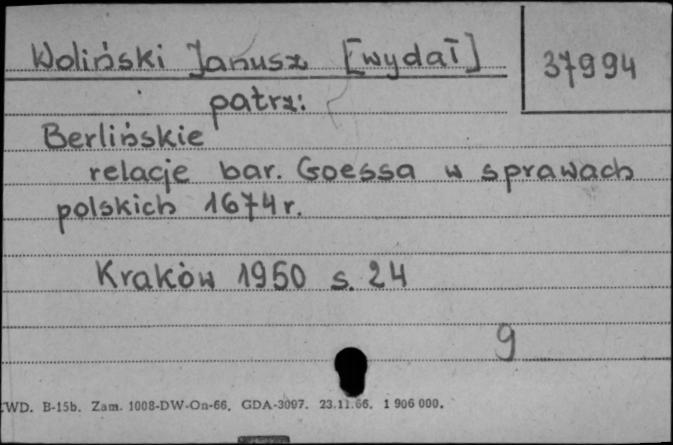 Woliński Janusz [wydał]
37994
patrz:
Berlińskie
relacje bar. Goessa w sprawach
polskich 1674 r.
Kraków 1950 s. 24
9
WD. B-15b. Zam. 1008-DW-On-66. GDA-3097. 23.11.66. 1 906 000.